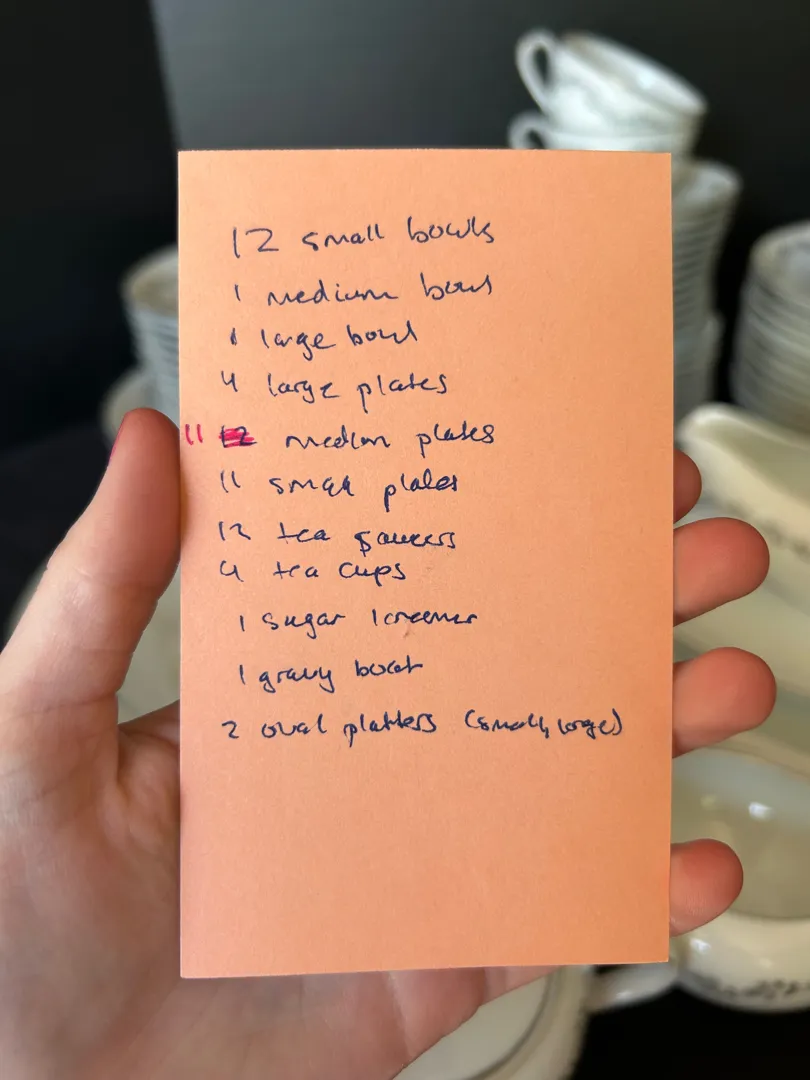 12 small bowls
1 medium bowl
1 large bowl
4 large plates
11 12 medium plates
11 small plates
12 tea saucers
4 tea cups
1 sugar / creamer
1 gravy boat
2 oval platters (small, large)